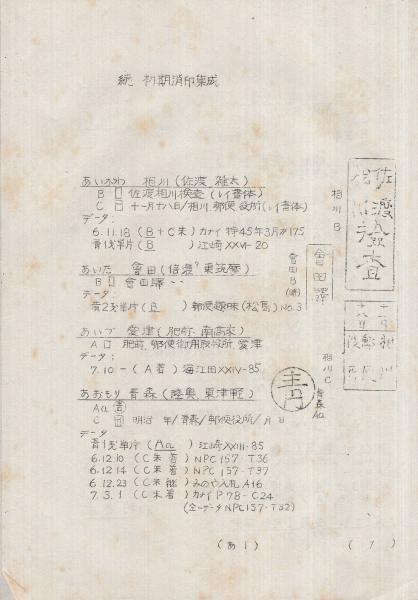 続 初期消印集成
あいかわ 相川 (佐渡, 雑太)
B 佐渡相川検査 (レイ書体)
C 十一月十八日/相川, 郵便役所 (レイ書体)
データ:
6.11.18 (B+C朱) カナイ 特45年3月P175
青1銭半片 (B) 江崎 XXVI-20
あいた 會田 (信濃, 東筑摩)
B 會田驛
データ:
青2銭半片 (B) 郵便趣味 (松島) No.3
あいづ 愛津 (肥前, 南高来)
A 肥前, 郵便御用取扱所, 愛津
データ:
7.10.- (A 着) 海江田 XXIV-85
あおもり 青森 (陸奥, 東津軽)
Aa 青
C 明治 年/青森/郵便役所/月 日
データ
青1銭半片 (Aa) 江崎 XXIII-85
6.12.10 (C 朱 着) NPC 157-T36
6.12.14 (C 朱 着) NPC 157-T37
6.12.23 (C 朱 継) みのや入札 A16
7.3.1 (C 朱 着) カナイ P78-C24
(全データ NPC 157-T32)
(あ1)
(1)
相川B
佐渡
検査
會田B
會田驛
相川C
十一月
十八日
相川
郵便
役所
青
青森Aa